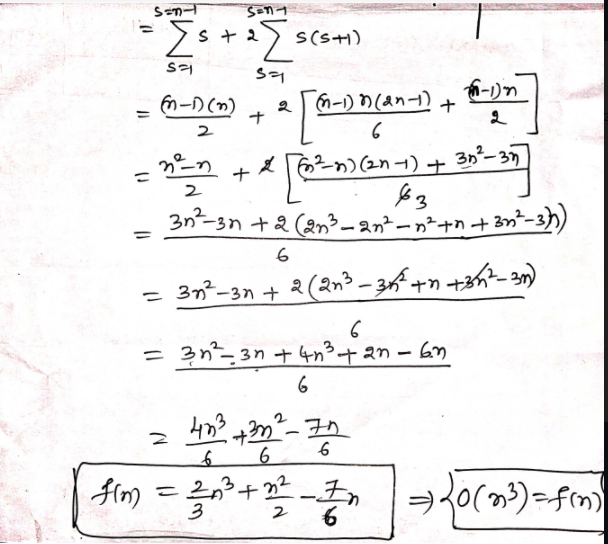 s=n-1 s=n-1
= ∑ s + 2 ∑ s(s+1)
s=1 s=1
= (n-1)(n)/2 + 2 [ (n-1)n(2n-1)/6 + (n-1)n/2 ]
= n²-n/2 + 2 [ (n²-n)(2n-1) + 3n²-3n / 6 3 ]
= 3n²-3n + 2(2n³-2n²-n²+n+3n²-3n) / 6
= 3n²-3n + 2(2n³-3n²+n+3n²-3n) / 6
= 3n²-3n + 4n³ + 2n - 6n / 6
= 4n³/6 + 3n²/6 - 7n/6
f(n) = 2/3 n³ + n²/2 - 7/6 n ⇒ {O(n³) = f(n)